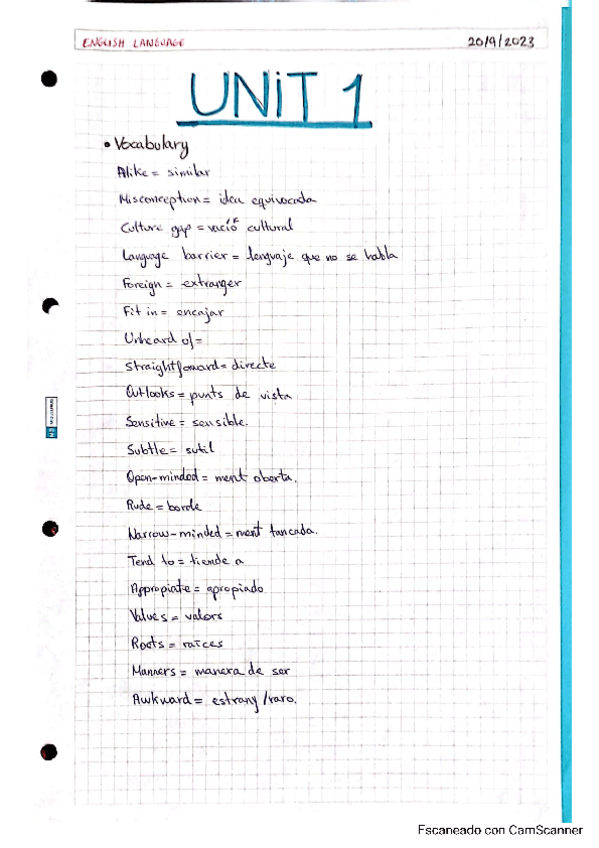 ENGLISH LANGUAGE 20/9/2023
UNIT 1
• Vocabulary
Alike = similar
Misconception = idea equivocada
Culture gap = vació cultural
Language barrier = lenguaje que no se habla
Foreign = extranger
Fit in = encajar
Unheard of =
Straightforward = directe
Outlooks = punts de vista
Sensitive = sensible.
Subtle = sutil
Open-minded = ment oberta.
Rude = borde
Narrow-minded = ment tancada.
Tend to = tiende a
Appropiate = apropiado
Values = valors
Roots = raíces
Manners = manera de ser
Awkward = estrany /raro.
Escaneado con CamScanner